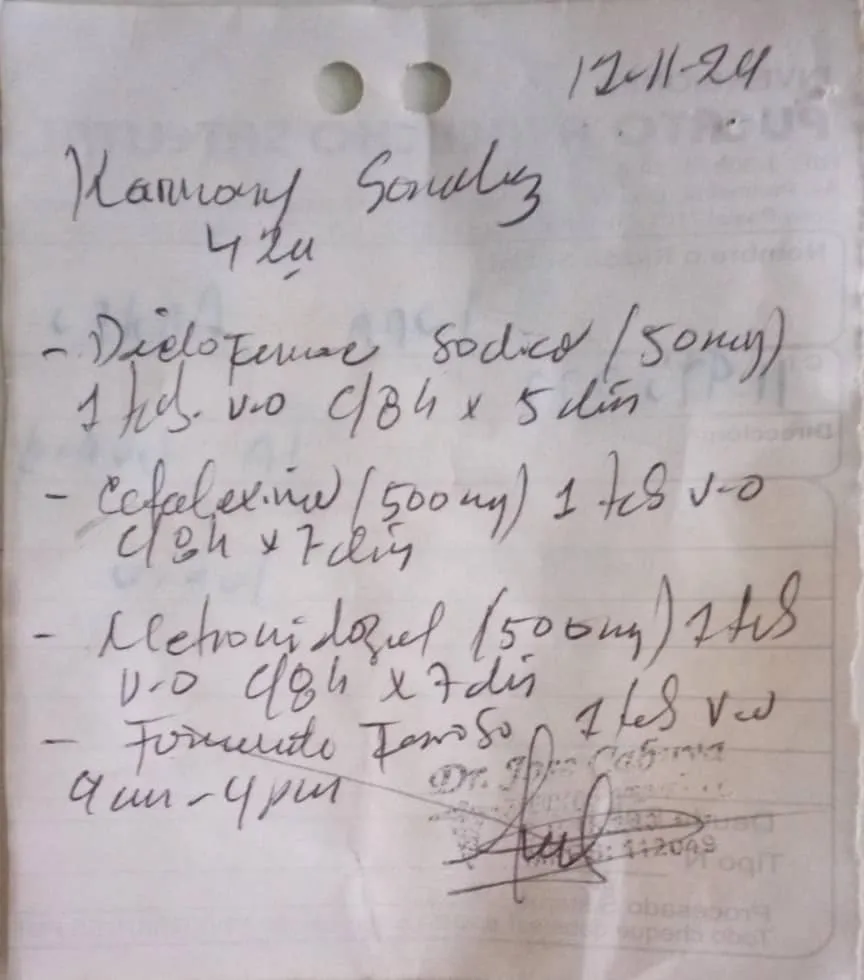 12-11-24
Karmary Gonzalez
42a
- Diclofenac Sodico (50mg)
1 tab. v.o c/8h x 5 dias
- Cefalexina (500mg) 1 tab v.o
c/8h x 7 dias
- Metronidazol (500mg) 1 tab
v.o c/8h x 7 dias
- Fumarato Ferroso 1 tab v.o
9am - 4pm
Dr. Jose Cabrera
112049